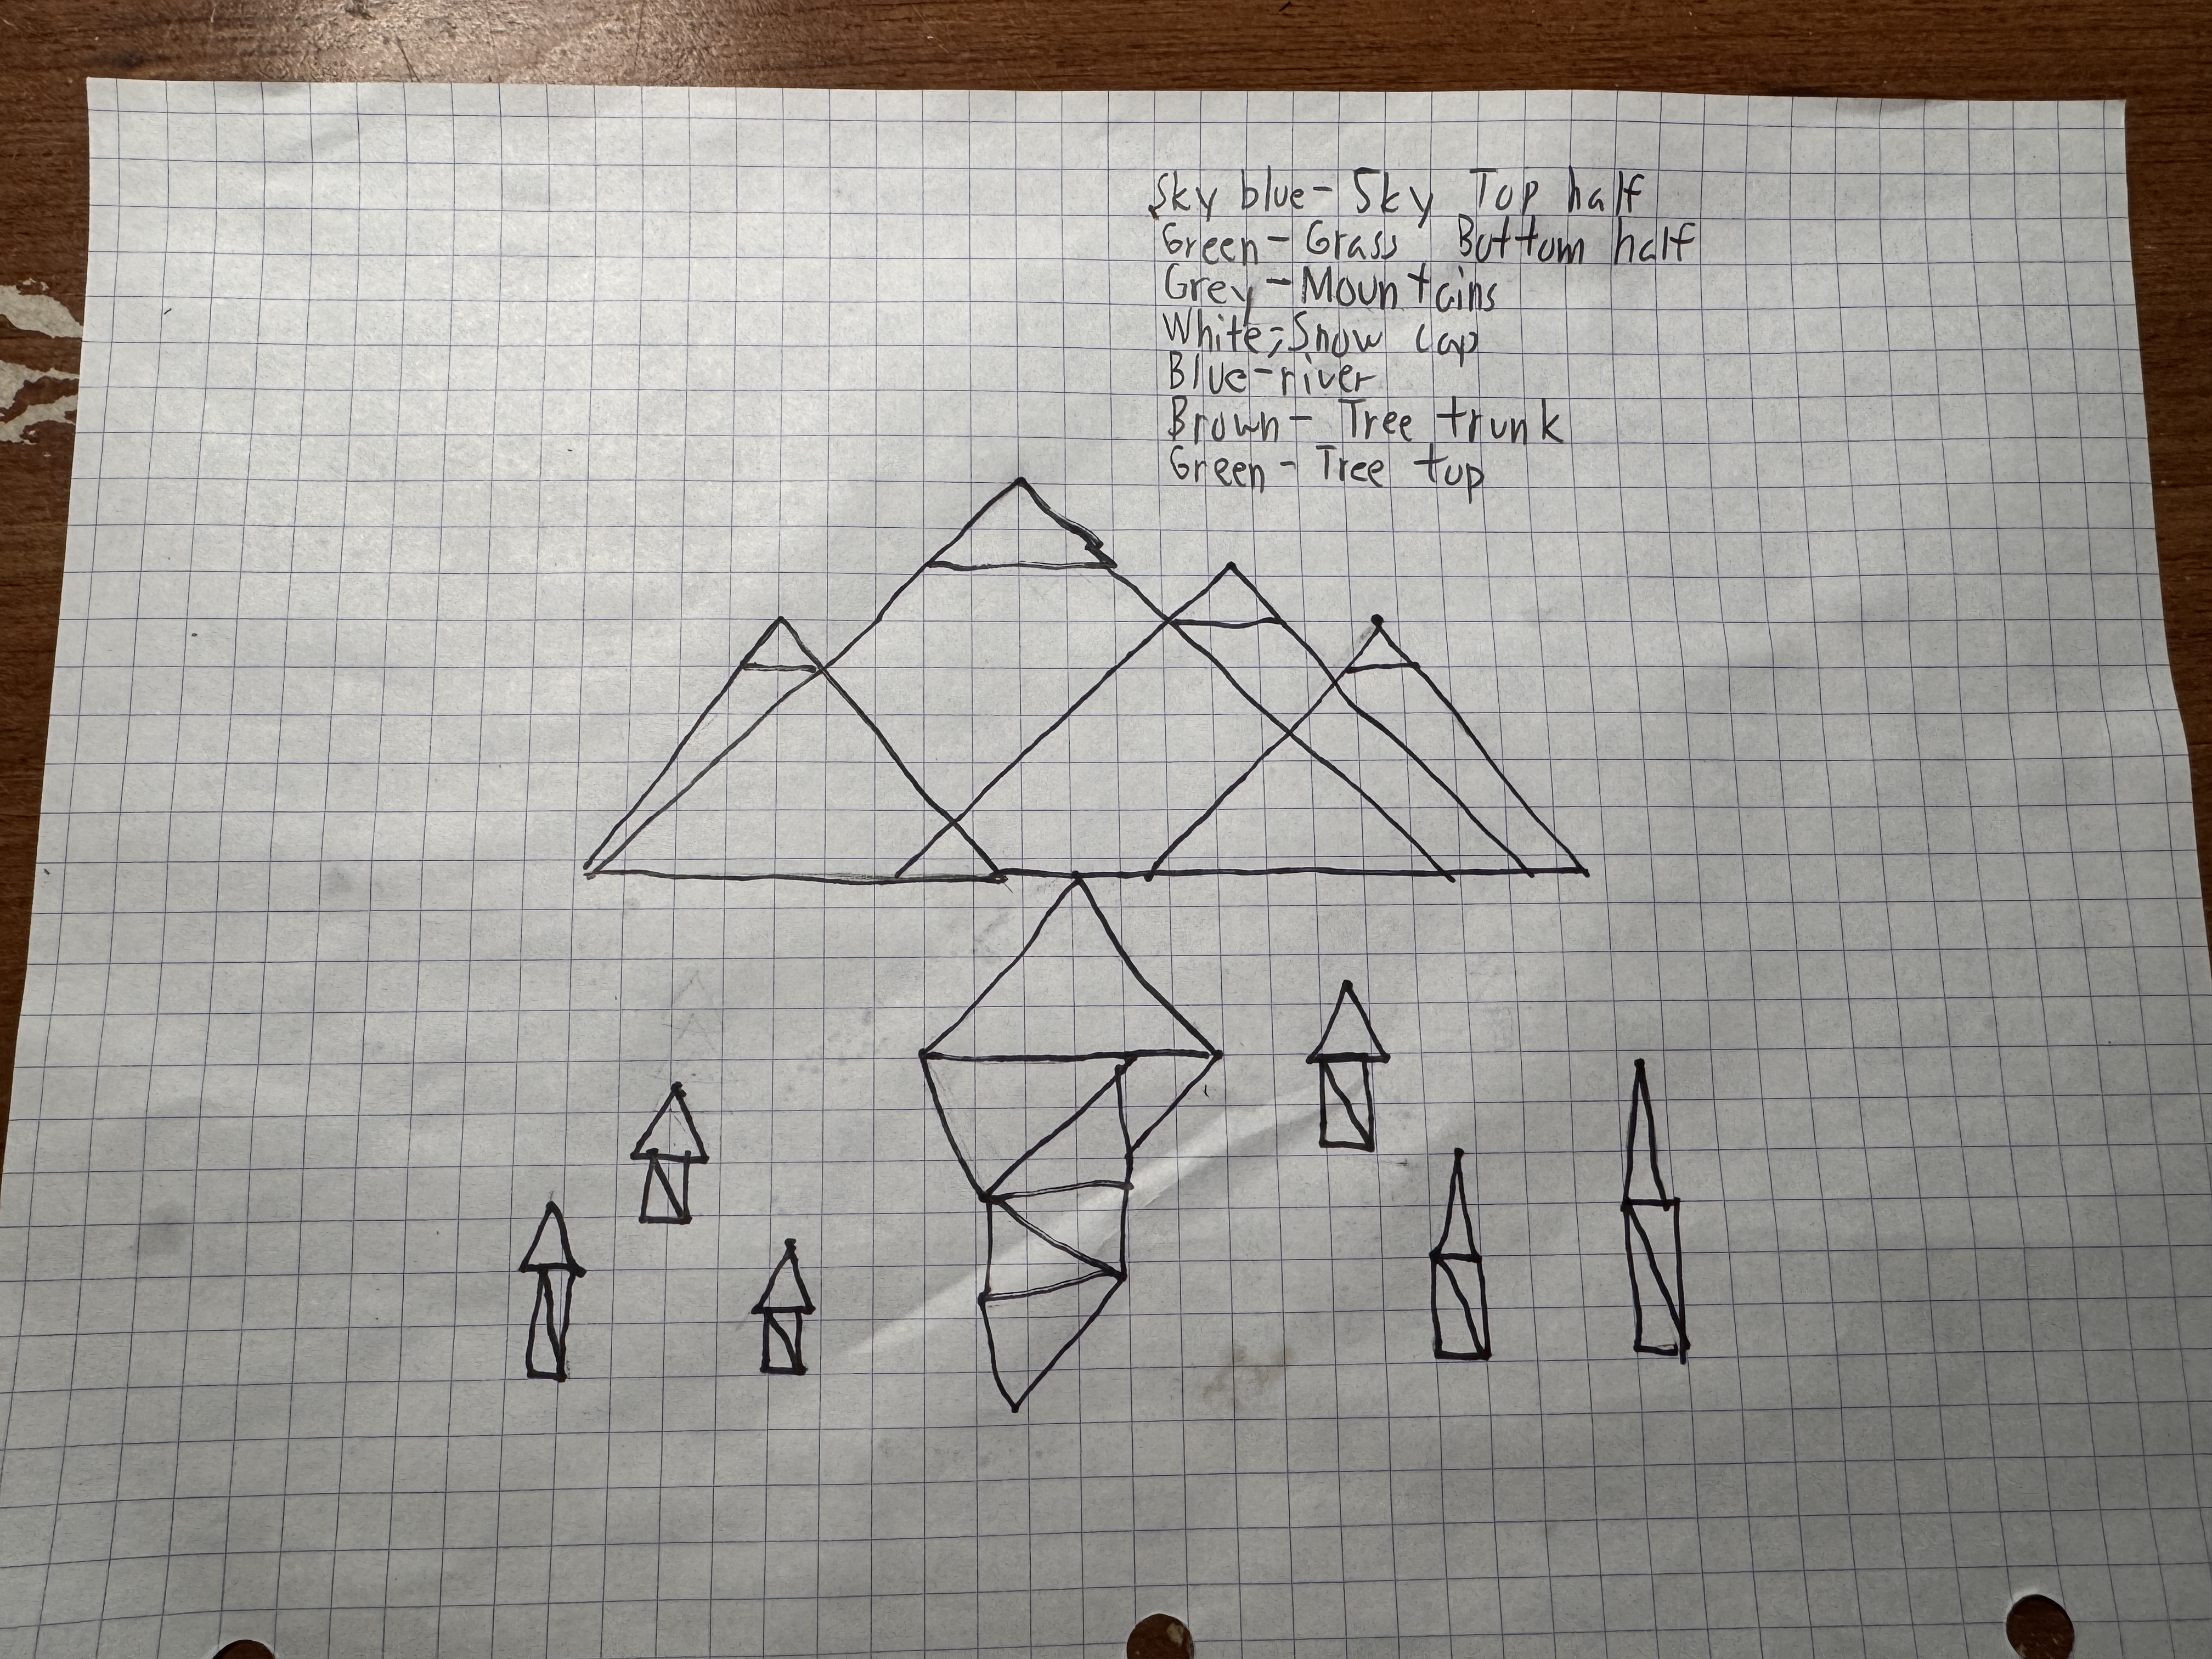 Sky blue- Sky Top half
Green- Grass Bottom half
Grey-Mountains
White-Snow cap
Blue-river
Brown- Tree trunk
Green- Tree top